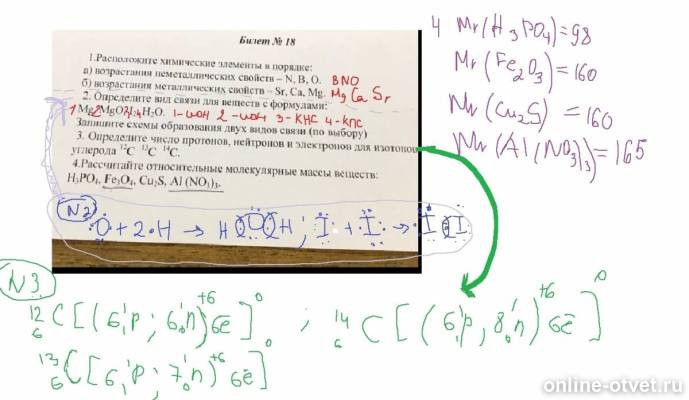 Билет № 18
1.Расположите химические элементы в порядке:
а) возрастания неметаллических свойств – N, B, O. BNO
б) возрастания металлических свойств – Sr, Ca, Mg. Mg Ca Sr
2. Определите вид связи для веществ с формулами:
H₂O. 3-КНС 4-КПС
Запишите схемы образования двух видов связи (по выбору)
3. Определить число протонов, нейтронов и электронов для изотопов
углерода ¹²C ¹³C ¹⁴C.
4.Рассчитайте относительные молекулярные массы веществ:
H₃PO₄, Fe₂O₄, Cu₂S, Al (NO₃)₃.
4 Mr(H₃PO₄)=98
Mr(Fe₂O₃)=160
Mr(Cu₂S)=160
Mr(Al(NO₃)₃)=165
N2 O+2·H → HOH; I + I → I I
N3
¹²₆C[(6¹₁p; 6¹₀n)⁺⁶6ē]⁰ ; ¹⁴₆C[(6¹₁p; 8¹₀n)⁺⁶6ē]⁰
¹³₆C[(6¹₁p; 7¹₀n)⁺⁶6ē]⁰
online-otvet.ru